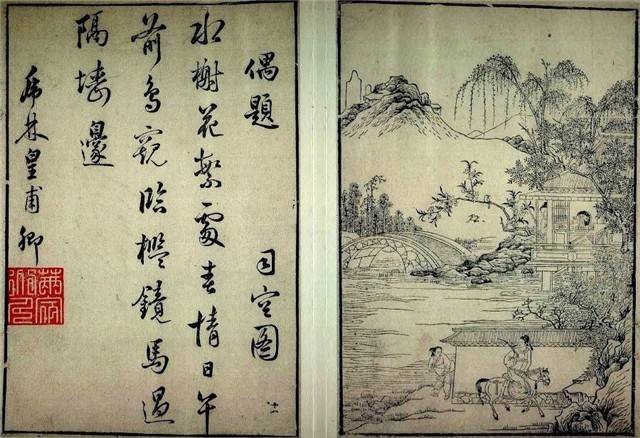 偶題
司空圖
水榭花繁處春情日午
前鳥窺臨檻鏡馬過
隔墻邊
虎林皇甫卿